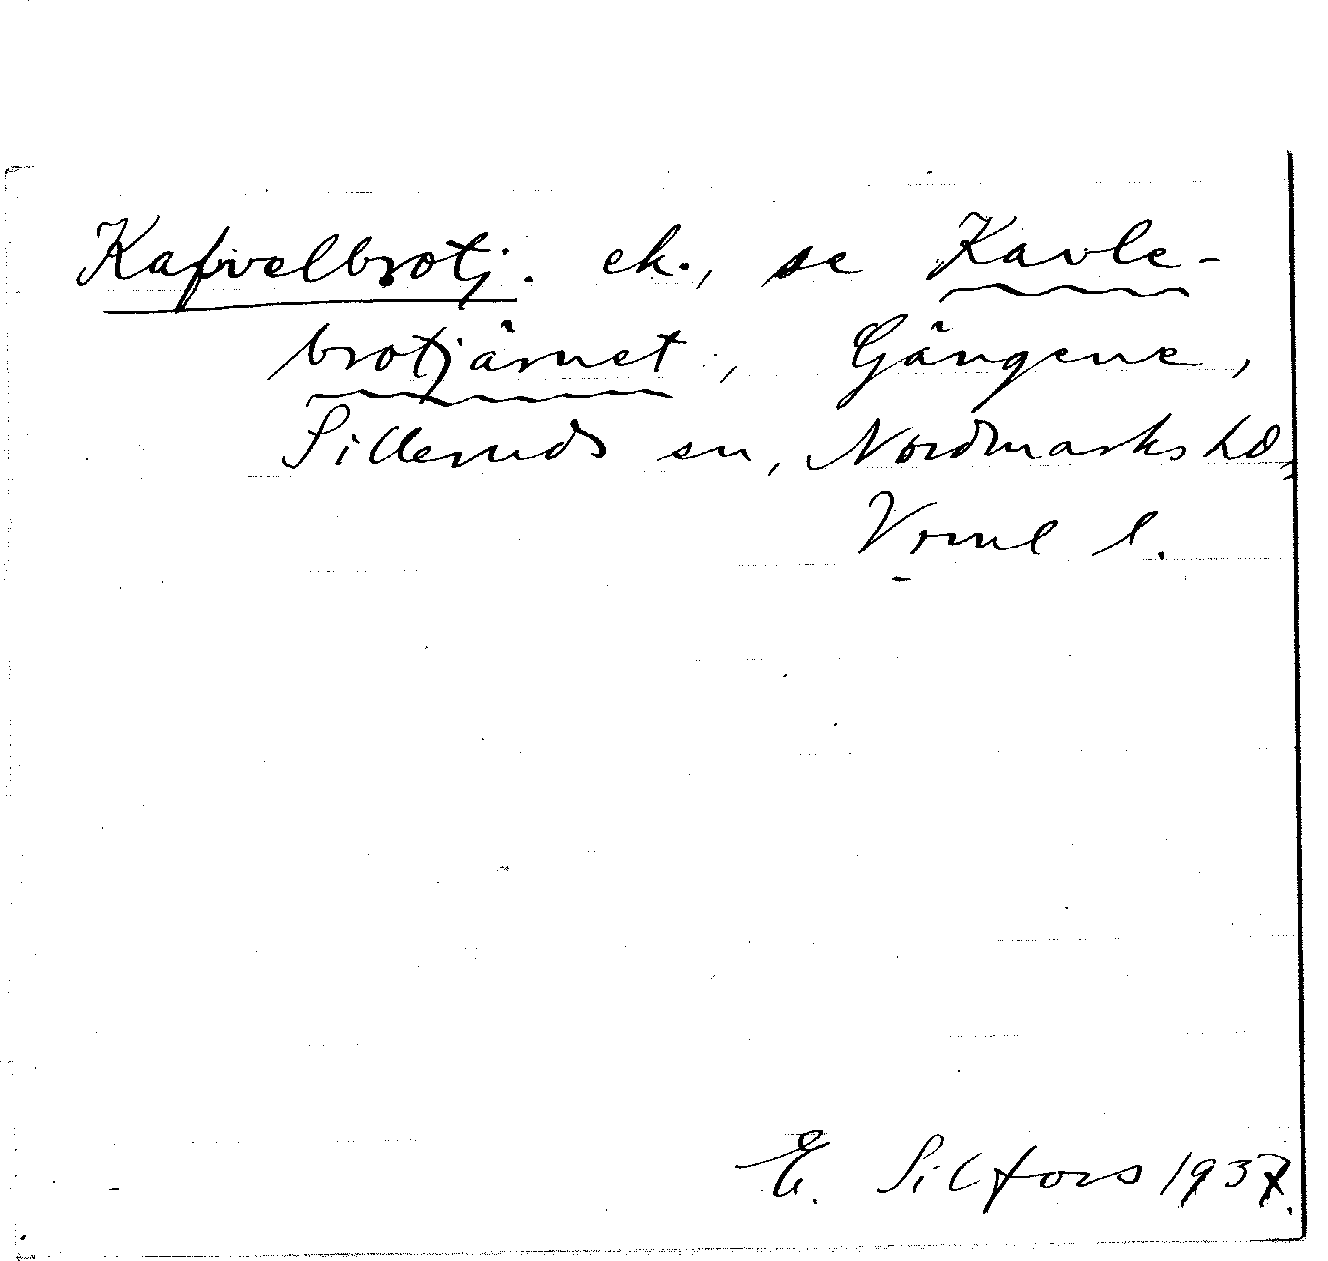 Kafvelbrotj. ek., se Kavle-
brotjärnet, Gängene,
Silleruds sn, Nordmarks hd,
Vrml l.
E. Silfors 1937.